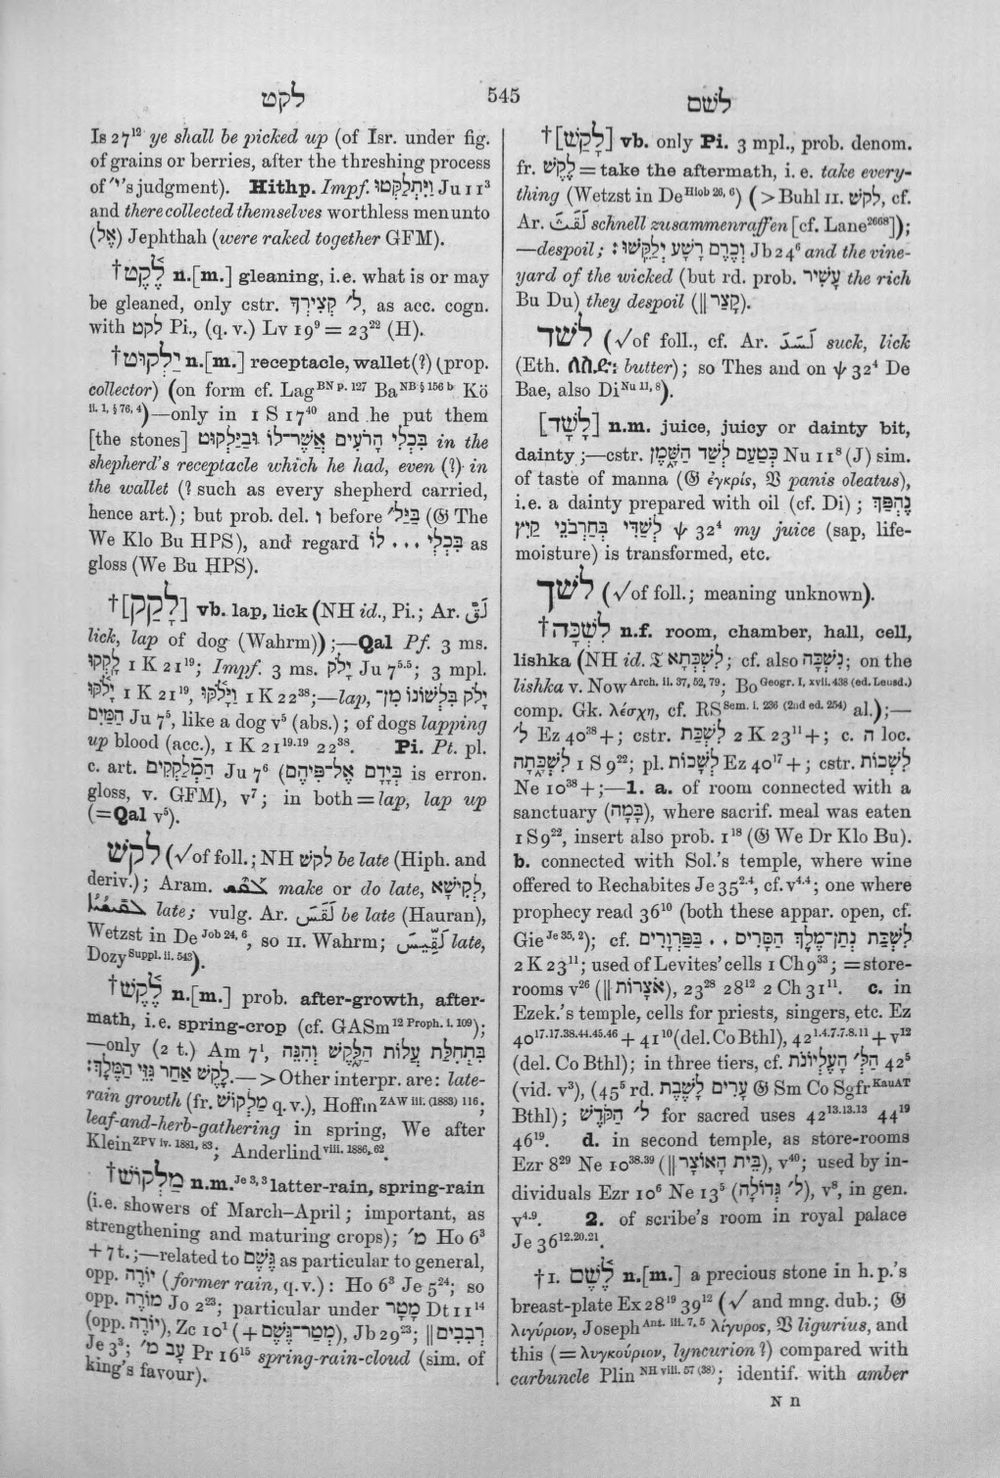 לקט
545
לשם
Is 27¹² ye shall be picked up (of Isr. under fig.
of grains or berries, after the threshing process
of ״י's judgment). Hithp. Impf. וַיִּתְלַקְּטוּ Ju 11³
and there collected themselves worthless men unto
(אֶל) Jephthah (were raked together GFM).
†לֶ֫קֶט n.[m.] gleaning, i.e. what is or may
be gleaned, only cstr. ל׳ קְצִירְךָ, as acc. cogn.
with לקט Pi., (q. v.) Lv 19⁹ = 23²² (H).
†יַלְקוּט n.[m.] receptacle, wallet(?) (prop.
collector) (on form cf. Lag BN p. 127 Ba NB § 156 b Kö
ii. 1, § 76, 4)—only in 1 S 17⁴⁰ and he put them
[the stones] בִּכְלִי הָרֹעִים אֲשֶׁר־לוֹ וּבַיַּלְקוּט in the
shepherd's receptacle which he had, even (?) in
the wallet (? such as every shepherd carried,
hence art.); but prob. del. ו before בַּיַּל׳ (𝔊 The
We Klo Bu HPS), and regard בִּכְלִי ... לוֹ as
gloss (We Bu HPS).
†[לָקַק] vb. lap, lick (NH id., Pi.; Ar. لَقَّ
lick, lap of dog (Wahrm));—Qal Pf. 3 ms.
לָקְקוּ 1 K 21¹⁹; Impf. 3 ms. יָלֹק Ju 7⁵·⁵; 3 mpl.
יָלֹקּוּ 1 K 21¹⁹, וַיָּלֹקּוּ 1 K 22³⁸;—lap, יָלֹק בִּלְשׁוֹנוֹ מִן־
הַמַּיִם Ju 7⁵, like a dog v⁵ (abs.); of dogs lapping
up blood (acc.), 1 K 21¹⁹·¹⁹ 22³⁸. Pi. Pt. pl.
c. art. הַמֲלַקְקִים Ju 7⁶ (בְּיָדָם אֶל־פִּיהֶם is erron.
gloss, v. GFM), v⁷; in both = lap, lap up
(= Qal v⁵).
לקשׁ (√ of foll.; NH לקשׁ be late (Hiph. and
deriv.); Aram. ܠܩܫ make or do late, לְקִישָׁא,
late; vulg. Ar. لَقَسَ be late (Hauran),
Wetzst in De Job 24, 6, so II. Wahrm; لَقِّيس late,
Dozy Suppl. ii. 543).
†לֶ֫קֶשׁ n.[m.] prob. after-growth, after-
math, i.e. spring-crop (cf. GASm 12 Proph. i. 109);
—only (2 t.) Am 7¹, בִּתְחִלַּת עֲלוֹת הַלָּ֑קֶשׁ וְהִנֵּה
לֶקֶשׁ אַחַר גִּזֵּי הַמֶּלֶךְ׃.—> Other interpr. are: late-
rain growth (fr. מַלְקוֹשׁ q. v.), Hoffm ZAW iii. (1883) 116;
leaf-and-herb-gathering in spring, We after
Klein ZPV iv. 1881, 83; Anderlind viii. 1886, 62.
†מַלְקוֹשׁ n.m. Je 3, 3 latter-rain, spring-rain
(i.e. showers of March–April; important, as
strengthening and maturing crops); מ׳ Ho 6³
+ 7 t.;—related to גֶּשֶׁם as particular to general,
opp. יוֹרֶה (former rain, q. v.): Ho 6³ Je 5²⁴; so
opp. מוֹרֶה Jo 2²³; particular under מָטָר Dt 11¹⁴
(opp. יוֹרֶה), Zc 10¹ (+ מְטַר־גֶּשֶׁם), Jb 29²³; ‖ רְבִבִים
Je 3³; עָב מ׳ Pr 16¹⁵ spring-rain-cloud (sim. of
king's favour).
†[לָקַשׁ] vb. only Pi. 3 mpl., prob. denom.
fr. לֶקֶשׁ = take the aftermath, i. e. take every-
thing (Wetzst in De Hiob 26, 6) (> Buhl II. לקשׁ, cf.
Ar. لَقَثَ schnell zusammenraffen [cf. Lane 2668]);
—despoil; וְכֶרֶם רָשָׁע יְלַקֵּשׁוּ׃ Jb 24⁶ and the vine-
yard of the wicked (but rd. prob. עָשִׁיר the rich
Bu Du) they despoil (‖ קָצַר).
לשׁד (√ of foll., cf. Ar. لَسَدَ suck, lick
(Eth. butter); so Thes and on ψ 32⁴ De
Bae, also Di Nu 11, 8).
[לָשָׁד] n.m. juice, juicy or dainty bit,
dainty;—cstr. כְּטַעַם לְשַׁד הַשָּׁ֑מֶן Nu 11⁸ (J) sim.
of taste of manna (𝔊 ἐγκρίς, 𝔙 panis oleatus),
i.e. a dainty prepared with oil (cf. Di); נֶהְפַּךְ
לְשַׁדִּי בְּחַרְבֹנֵי קַיִץ ψ 32⁴ my juice (sap, life-
moisture) is transformed, etc.
לשׁך (√ of foll.; meaning unknown).
†לִשְׁכָּה n.f. room, chamber, hall, cell,
lishka (NH id. 𝔗 לִשְׁכְּתָא; cf. also נִשְׁכָּה; on the
lishka v. Now Arch. ii. 37, 52, 79; Bo Geogr. I, xvii. 438 (ed. Leusd.)
comp. Gk. λέσχη, cf. RS Sem. i. 236 (2nd ed. 254) al.);—
ל׳ Ez 40³⁸ +; cstr. לִשְׁכַּת 2 K 23¹¹ +; c. ה loc.
לִשְׁכָּ֑תָה 1 S 9²²; pl. לְשָׁכוֹת Ez 40¹⁷ +; cstr. לִשְׁכוֹת
Ne 10³⁸ +;—1. a. of room connected with a
sanctuary (בָּמָה), where sacrif. meal was eaten
1 S 9²², insert also prob. 1¹⁸ (𝔊 We Dr Klo Bu).
b. connected with Sol.'s temple, where wine
offered to Rechabites Je 35²·⁴, cf. v⁴·⁴; one where
prophecy read 36¹⁰ (both these appar. open, cf.
Gie Je 35, 2); cf. לִשְׁכַּת נְתַן־מֶלֶךְ הַסָּרִים . . בַּפַּרְוָרִים
2 K 23¹¹; used of Levites' cells 1 Ch 9³³; = store-
rooms v²⁶ (‖ אֹצָרוֹת), 23²⁸ 28¹² 2 Ch 31¹¹. c. in
Ezek.'s temple, cells for priests, singers, etc. Ez
40¹⁷·¹⁷·³⁸·⁴⁴·⁴⁵·⁴⁶ + 41¹⁰ (del. Co Bthl), 42¹·⁴·⁷·⁷·⁸·¹¹ + v¹²
(del. Co Bthl); in three tiers, cf. הַלּ׳ הָעֶלְיוֹנֹת 42⁵
(vid. v³), (45⁵ rd. עָרִים לָשֶׁבֶת 𝔊 Sm Co Sgfr KauAT
Bthl); ל׳ הַקֹּדֶשׁ for sacred uses 42¹³·¹³·¹³ 44¹⁹
46¹⁹. d. in second temple, as store-rooms
Ezr 8²⁹ Ne 10³⁸·³⁹ (‖ בֵּית הָאוֹצָר), v⁴⁰; used by in-
dividuals Ezr 10⁶ Ne 13⁵ (ל׳ גְּדוֹלָה), v⁸, in gen.
v⁴·⁹. 2. of scribe's room in royal palace
Je 36¹²·²⁰·²¹.
†I. לֶ֫שֶׁם n.[m.] a precious stone in h. p.'s
breast-plate Ex 28¹⁹ 39¹² (√ and mng. dub.; 𝔊
λιγύριον, Joseph Ant. iii. 7, 5 λίγυρος, 𝔙 ligurius, and
this (= λυγκούριον, lyncurion?) compared with
carbuncle Plin NH viii. 57 (38); identif. with amber
N n